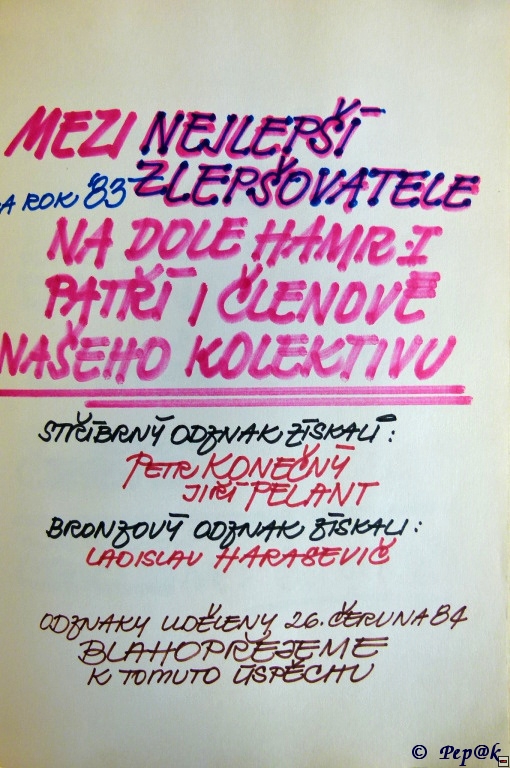 MEZI NEJLEPŠÍ
A ROK '83 ZLEPŠOVATELE
NA DOLE HAMR-I
PATŘÍ I ČLENOVÉ
NAŠEHO KOLEKTIVU
STŘÍBRNÝ ODZNAK ZÍSKALI:
PETR KONEČNÝ
JIŘÍ PELANT
BRONZOVÝ ODZNAK ZÍSKALI:
LADISLAV HARASEVIČ
ODZNAKY UDĚLENY 26. ČERVNA 84
BLAHOPŘEJEME
K TOMUTO ÚSPĚCHU
© Pep@k